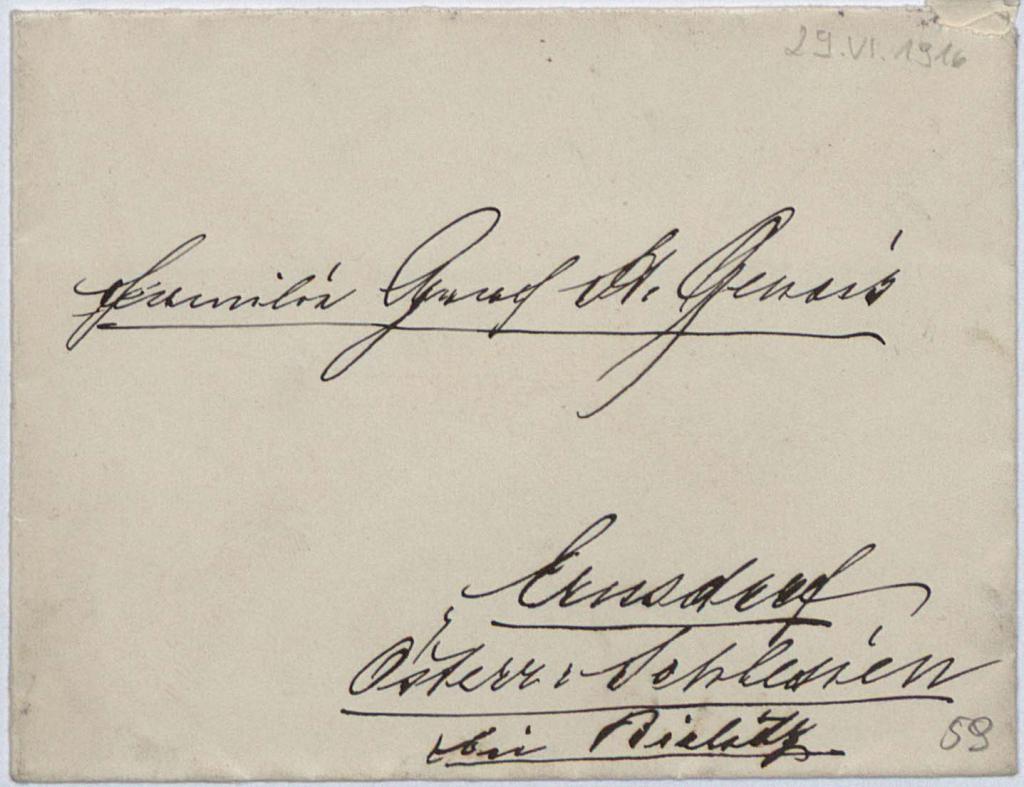 29.VI.1916
Familie Graf St. Genois
Ernsdorf
Österr: Schlesien
bei Bielitz
59